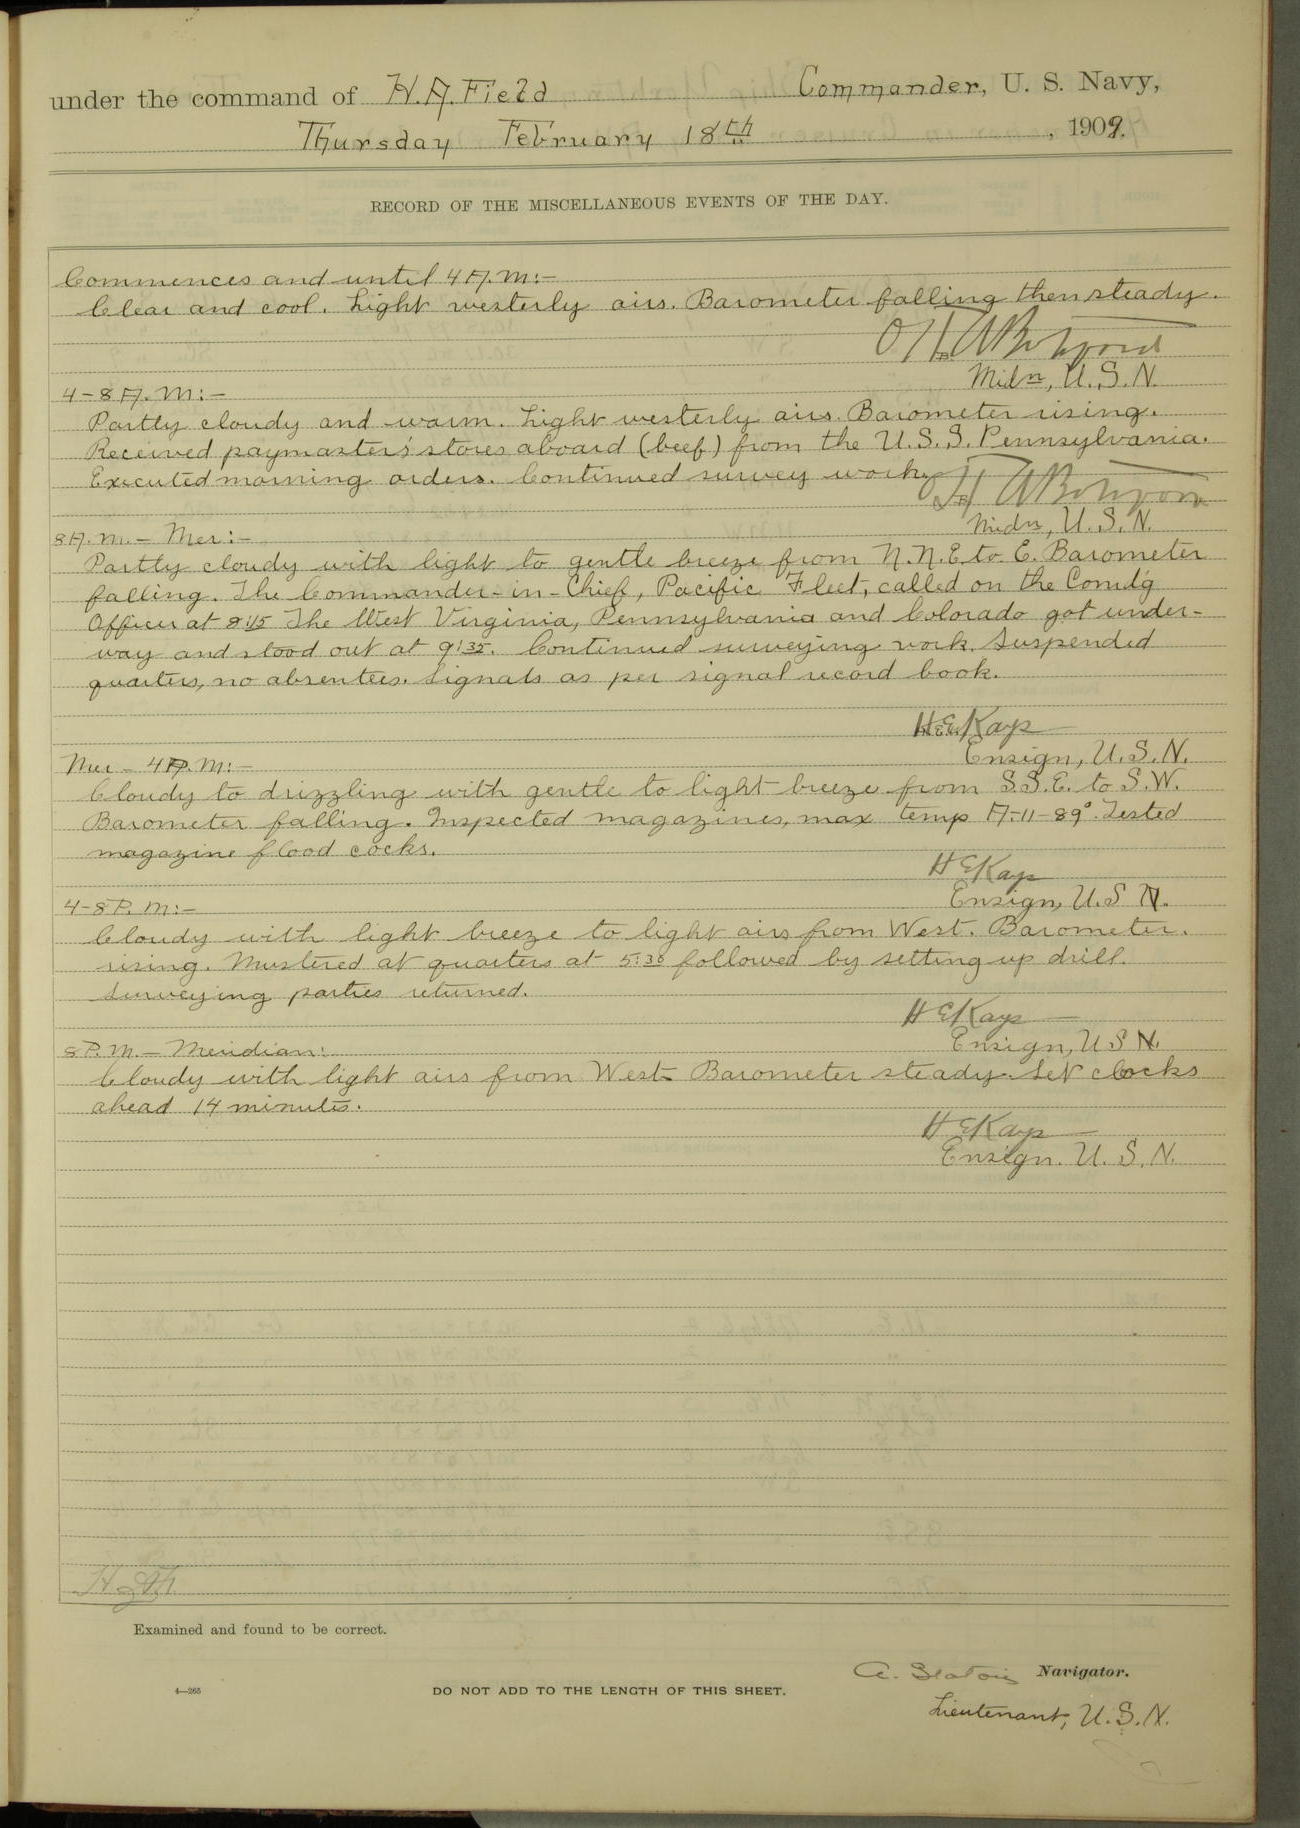 under the command of H. A. Field Commander, U. S. Navy,
Thursday February 18th, 1909.
RECORD OF THE MISCELLANEOUS EVENTS OF THE DAY.
Commences and until 4 A. M:-
Clear and cool. Light westerly airs. Barometer falling then steady.
Midn, U.S.N.
4-8 A. M:-
Partly cloudy and warm. Light westerly airs. Barometer rising.
Received paymaster's stores aboard (beef) from the U.S.S. Pennsylvania.
Executed morning orders. Continued survey work.
Midn, U.S.N.
8 A. M. - Mer:-
Partly cloudy with light to gentle breeze from N.N.E. to E. Barometer
falling. The Commander-in-Chief, Pacific Fleet, called on the Comd'g
Officer at 8:15 The West Virginia, Pennsylvania and Colorado got under-
way and stood out at 9:35. Continued surveying work. Suspended
quarters, no absentees. Signals as per signal record book.
H E Kays
Ensign, U.S.N.
Mer - 4 P. M:-
Cloudy to drizzling with gentle to light breeze from S.S.E. to S.W.
Barometer falling. Inspected magazines, max temp A-11-89°. Tested
magazine flood cocks.
H E Kays
Ensign, U.S N.
4-8 P. M:-
Cloudy with light breeze to light airs from West. Barometer.
rising. Mustered at quarters at 5:30 followed by setting up drill.
Surveying parties returned.
H E Kays
Ensign, U S N.
8 P. M. - Meridian:
Cloudy with light airs from West. Barometer steady. Set clocks
ahead 14 minutes.
H E Kays
Ensign. U. S. N.
Examined and found to be correct.
Navigator.
4—265
DO NOT ADD TO THE LENGTH OF THIS SHEET.
Lieutenant, U.S.N.